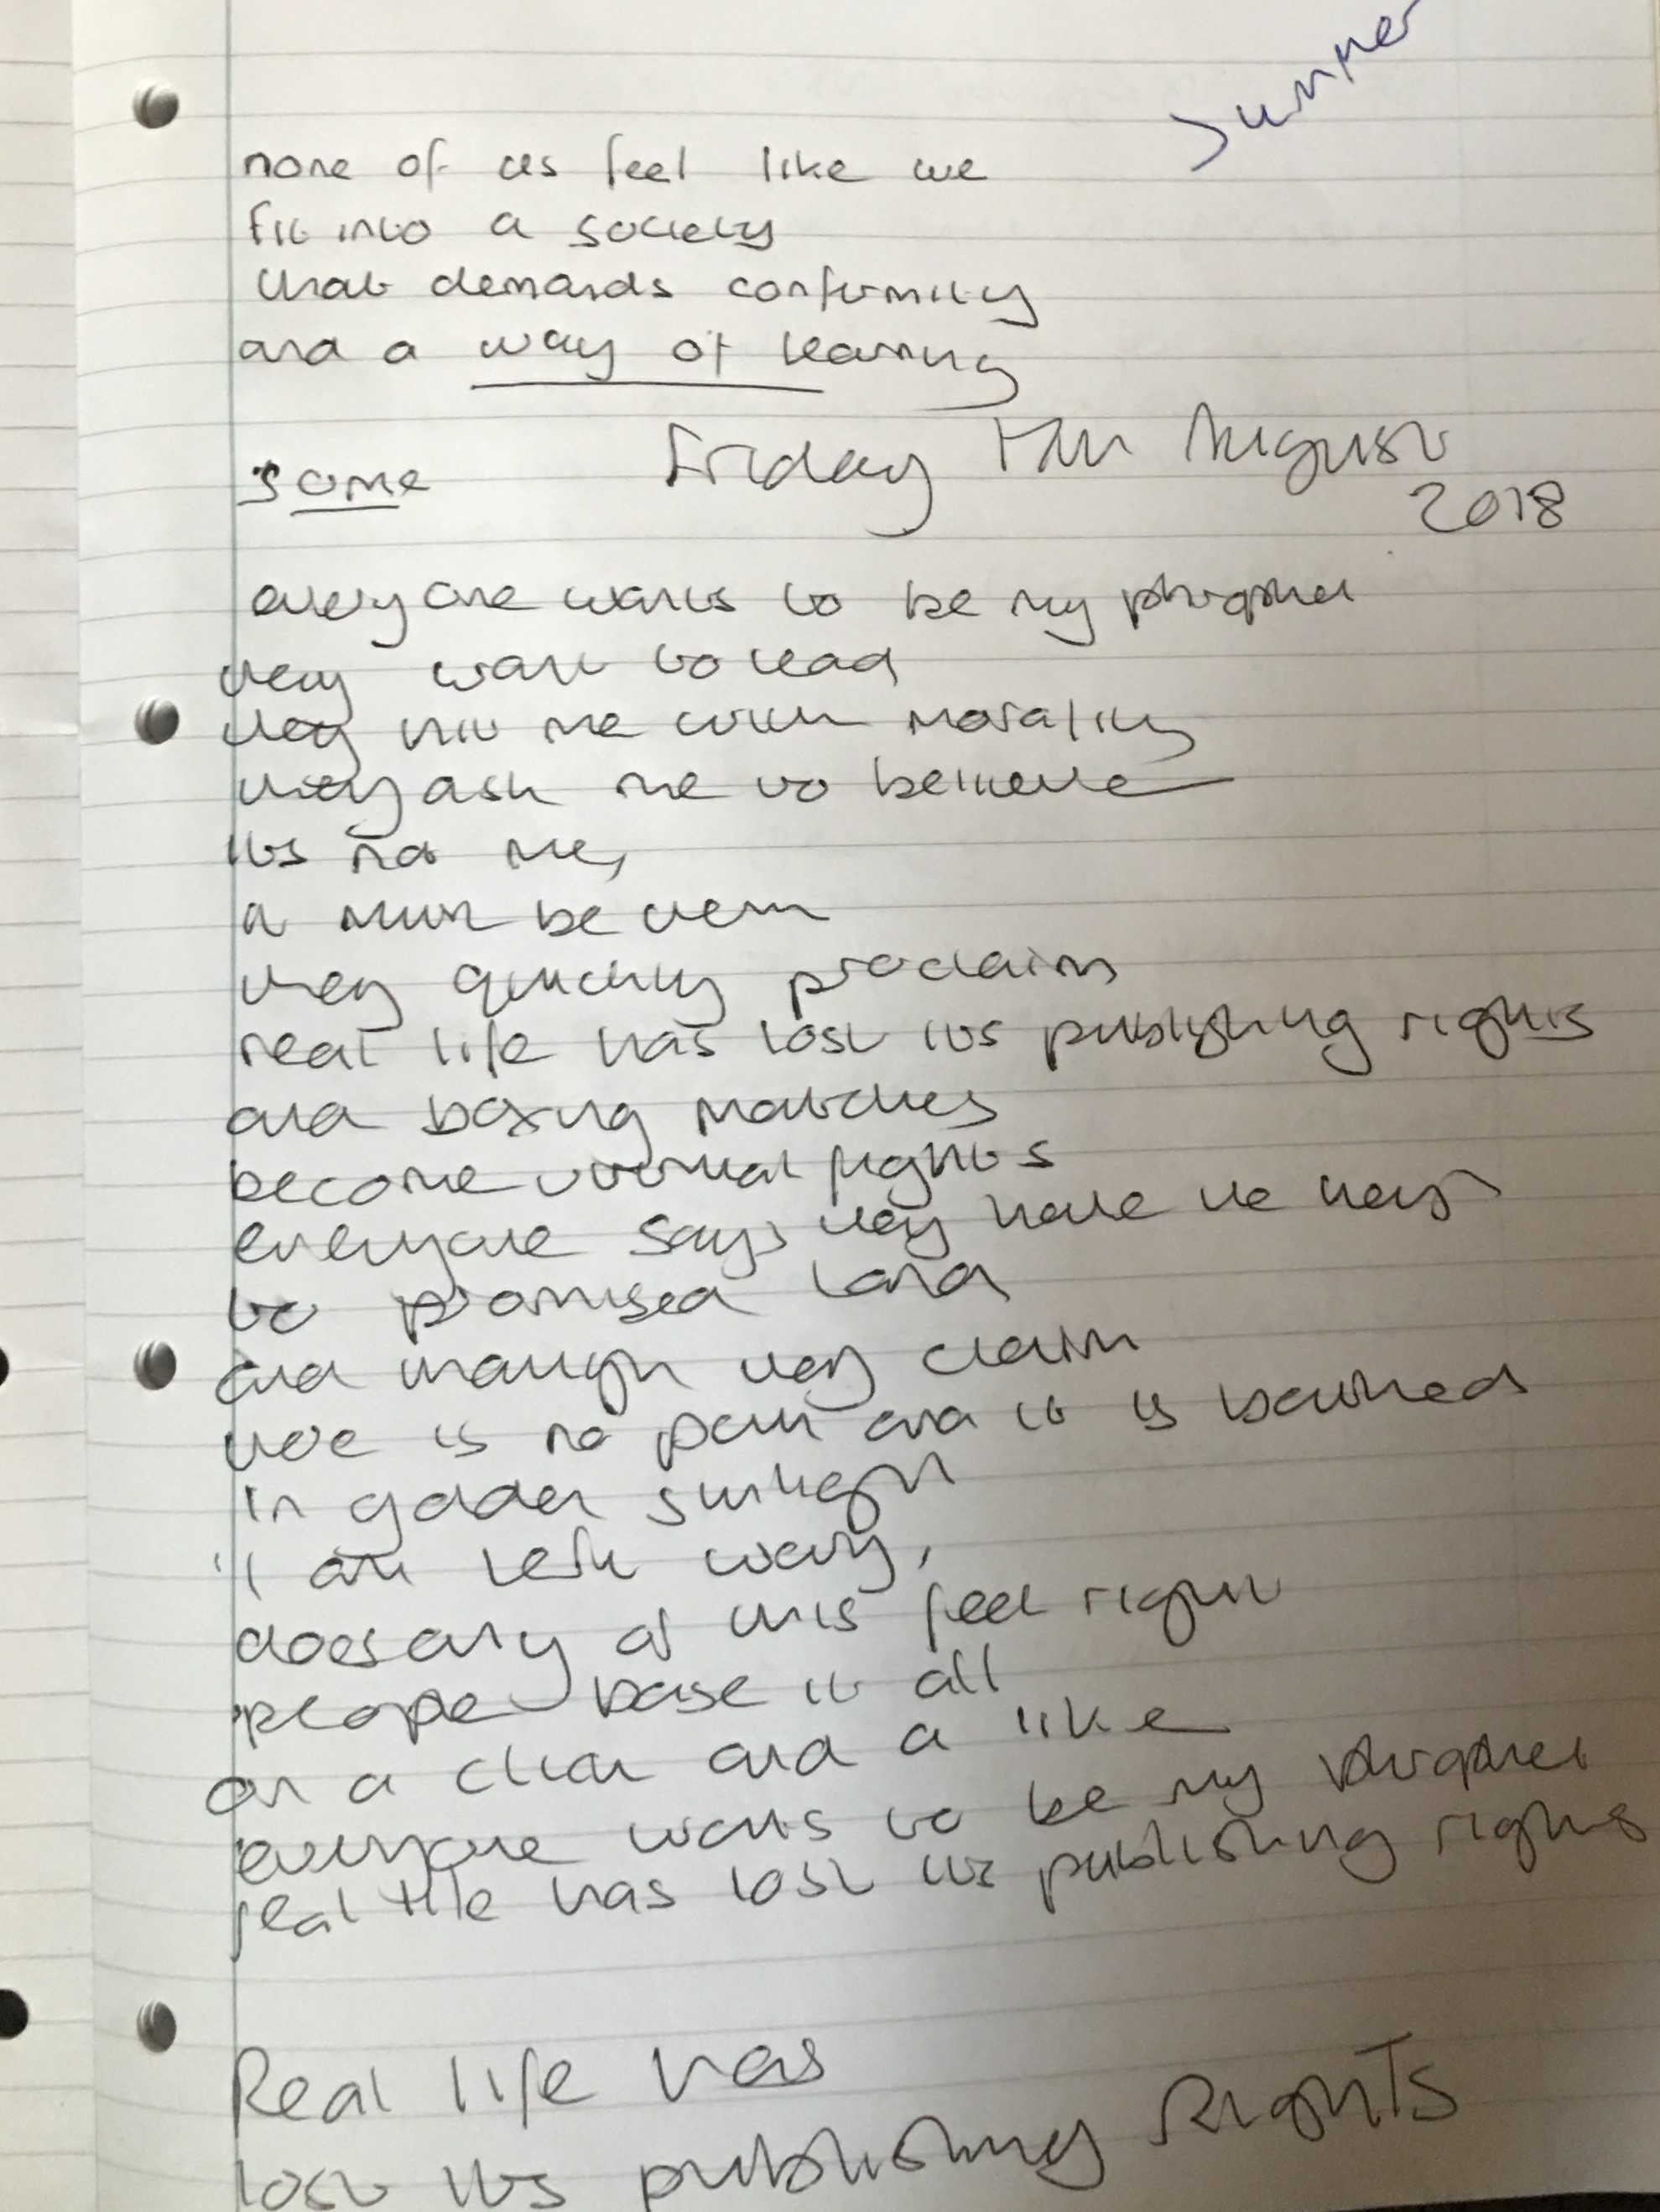 Summer
none of us feel like we
fit into a society
that demands conformity
and a way of learning
some
Friday August
2018
everyone wants to be my
they want to lead
they hit me with morality
they ask me to believe
its not me,
a must be them
they quickly proclaim
real life has lost its publishing rights
and boxing matches
become virtual fights
everyone says they have the keys
to promised land
and they claim
there is no pain and it is bathed
in golden sunlight
I am left wary,
does any of this feel right
people base it all
on a click and a like
everyone wants to be my
real life has lost its publishing rights
Real life has
lost its publishing RIGHTS